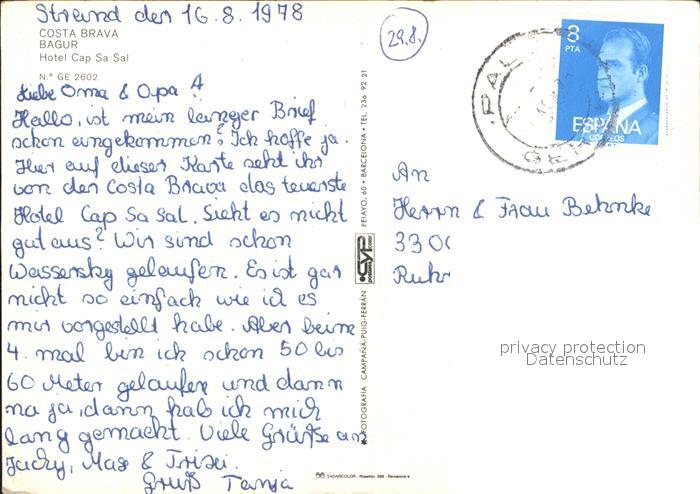 Strand den 16.8.1978
COSTA BRAVA
BAGUR
Hotel Cap Sa Sal
N.º GE 2602
Liebe Oma & Opa!
Hallo, ist mein langer Brief
schon eingekommen? Ich hoffe ja.
Hier auf dieser Karte seht ihr
von der Costa Brava das teuerste
Hotel Cap Sa Sal. Sieht es nicht
gut aus? Wir sind schon
Wassersky gelaufen. Es ist gar
nicht so einfach wie ich es
mir vorgestellt habe. Aber beim
4. mal bin ich schon 50 bis
60 Meter gelaufen und dann
na ja, dann hab ich mich
lang gemacht. Viele Grüße an
Jacky, Max & Trixi.
Gruß Tanja
29.8.
FOTOGRAFIA CAMPAÑA-PUIG-FERRÁN
CYP
PELAYO, 60 • BARCELONA • TEL. 236 92 21
8
PTA
ESPAÑA
CORREOS
PAL
GER
An
Herrn & Frau Behnke
330
Ruhr
privacy protection
Datenschutz